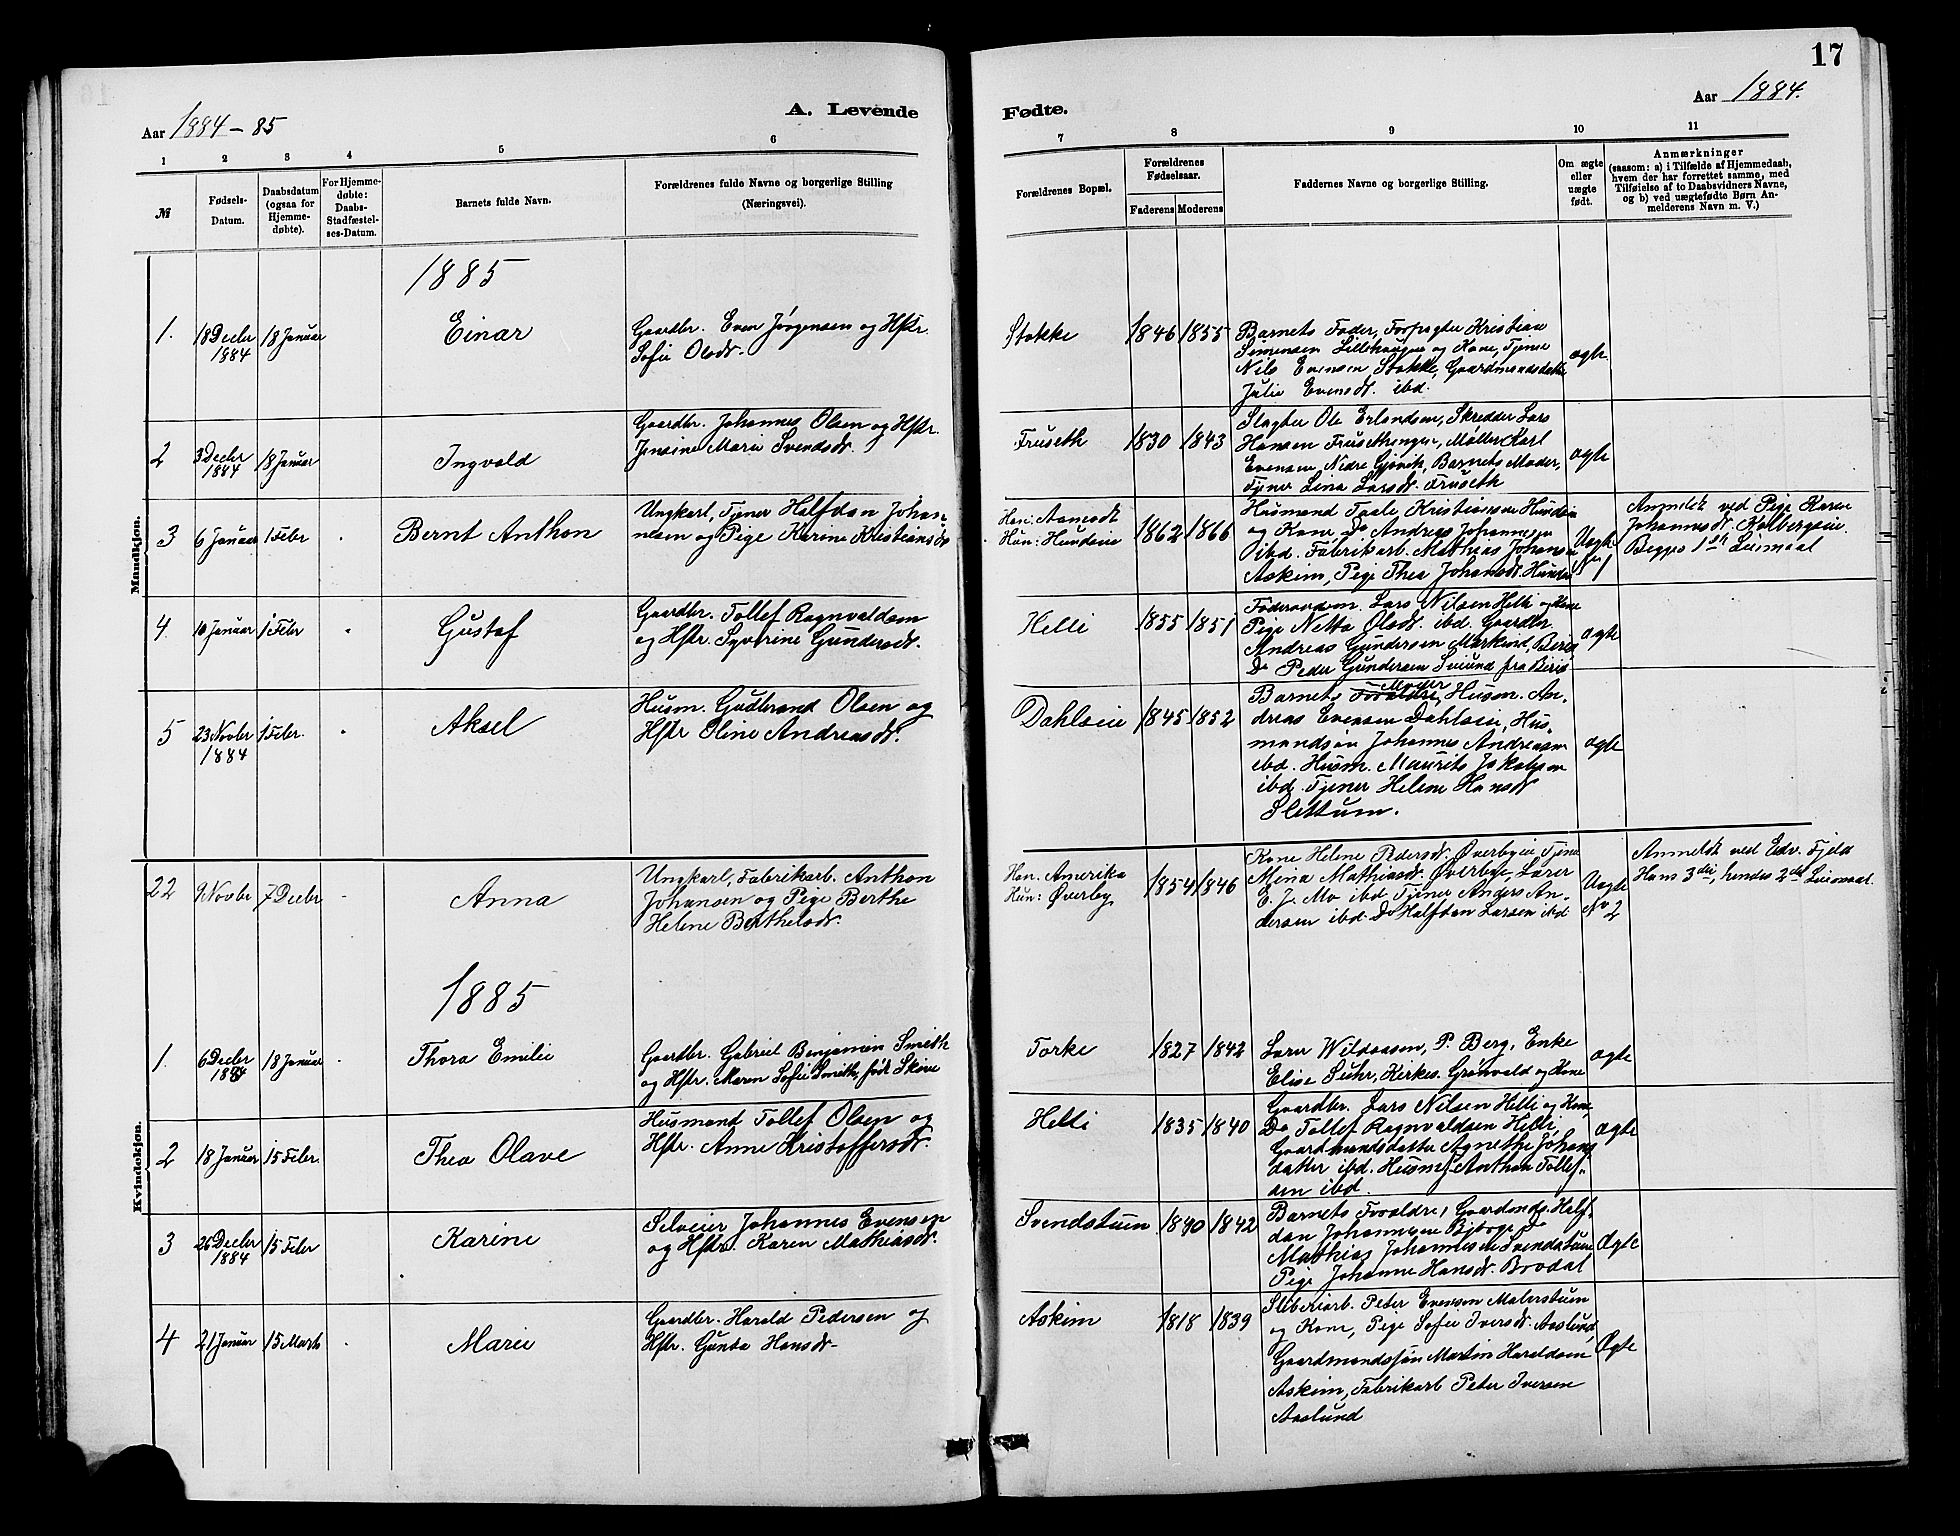 17
Aar 1884-85
A. Levende
Fødte.
Aar 1884.
1 2 3 4 5 6 7 8 9 10 11
№
Fødsels-
Datum.
Daabsdatum
(ogsaa for
Hjemme-
døbte).
For Hjemme-
døbte:
Daabs-
Stadfæstel-
ses-Datum.
Barnets fulde Navn.
Forældrenes fulde Navne og borgerlige Stilling
(Næringsvei).
Forældrenes Bopæl.
Forældrenes
Fødselsaar.
Faderens Moderens
Faddernes Navne og borgerlige Stilling.
Om ægte
eller
uægte
født.
Anmærkninger
(saasom: a) i Tilfælde af Hjemmedaab,
hvem der har forrettet samme, med
Tilføielse af to Daabsvidners Navne,
og b) ved uægtefødte Børn An-
melderens Navn m. V.)
Mandkjøn.
1885
1.
18 Decbr
1884
18 Januar
Einar
Gaardbr. Even Jørgensen og Hstr.
Sofie Olsdr.
Stokke
1846 1855
Barnets Fader, Forpagter Kristian
Simensen Lillehaugen og Kone, Tjener
Nils Evensen Stokke, Gaardmandsdatter
Julie Evensdr. ibd.
ægte
2
3 Decbr
1884
18 Januar
Ingvald
Gaardbr. Johannes Olsen og Hstr.
Jensine Marie Svendsdr.
Fruseth
1830 1843
Slagter Ole Erlandsen, Skredder Lars
Hansen Frusethengen, Møller Karl
Evensen Nedre Gjøvik, Barnets Moder,
Tjener Lina Larsdr. Fruseth
ægte
3
6 Januar
1 Febr
Bernt Anthon
Ungkarl, Tjener Halfdan Johan-
nesen og Pige Karine Kristiansdr
Han: Aamodt
Hun: Hundseie
1862 1866
Husmand Taale Kristiansen Hundseie
og Kone, Do Andreas Johannesen
ibd. Fabrikarb. Mathias Johansen
Askim, Pige Thea Johansdr. Hundsei
Uægte
No 1
Anmeldt ved Pige Karen
Johannesdr. Kolbergseie.
Begges 1st Leiermaal
4.
10 Januar
1 Febr
Gustaf
Gaardbr. Tollef Ragnvaldsen
og Hstr. Syverine Gundersdr.
Helli
1855 1851
Føderaadsm. Lars Nilsen Helli og Kone
Pige Netta Olsdr. ibd. Gaardbr.
Andreas Gundersen Markind, Biri,
Do Peder Gundersen Sveiund fra Biri
ægte
5
23 Novbr
1884
1 Febr.
Aksel
Husm. Gudbrand Olsen og
Hstr Oline Andreasdr.
Dahlseie
1845 1852
Moder
Barnets Forældre, Husm. An-
dreas Evensen Dahlseie, Hus-
mandsøn Johannes Andreasen
ibd. Husm. Maurits Jakobsen
ibd. Tjener Helene Hansdr
Slettum.
ægte
Kvindekjøn.
22
9 Novbr
7 Decbr
Anna
Ungkarl, Fabrikarb. Anthon
Johansen og Pige Berthe
Helene Berthelsdr.
Han. Amerika
Hun: Øverby
1854 1846
Kone Helene Pedersdr. Øverbyeie Tjener
Mina Mathiasdr. Øverbye, Lærer
E. J. Mo ibd Tjener Anders An-
dersen ibd. Do Halfdan Larsen ibd
Uægte
No 2
Anmeldt ved Edv. Fjeld
Hans 3die, hendes 2det Leiermaal.
1885
1.
6 Decbr
1884
18 Januar
Thora Emilie
Gaardbr. Gabriel Benjamin Smith
og Hstr. Maren Sofie Smith, født Skive
Torke
1827 1842
Lærer Wildaasen, P. Berg, Enke
Elise Suhr, Kirkes. Grønvold og Kone
ægte
2
18 Januar
15 Febr.
Thea Olave
Husmand Tollef Olsen og
Hstr. Anne Kristoffersdr.
Helli
1835 1840
Gaardbr. Lars Nilsen Helli og Kone,
Do Tollef Ragnvaldsen Helli,
Gaardmandsdatter Agnethe Johans
datter ibd. Husm. Anthon Tollef-
sen ibd.
ægte
3
26 Decbr
1884
15 Febr
Karine
Selveier Johannes Evensen
og Hstr. Karen Mathiasdr.
Svendstuen
1840 1842
Barnets Forældre, Gaardmds. Half-
dan Johannesen Bjørge, Do
Mathias Johannesen Svendstuen
Pige Johanne Hansdr. Brodal
Ægte
4
21 Januar
15 Marts
Marie
Gaardbr. Harald Pedersen og
Hstr. Gunta Hansdr-
Askim
1818 1839
Sliberiarb. Peter Evensen Malerstuen
og Kone, Pige Sofie Iversdr. Aaslund,
Gaardmandssøn Martin Haraldsen
Askim, Fabrikarb Peter Iversen
Aaslund
Ægte